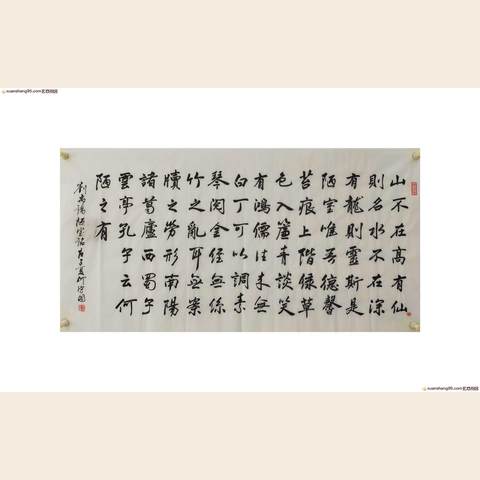 山不在高有仙
則名水不在深
有龍則靈斯是
陋室唯吾德馨
苔痕上階綠草
色入簾青談笑
有鴻儒往來無
白丁可以調素
琴閱金經無絲
竹之亂耳無案
牘之勞形南陽
諸葛廬西蜀子
雲亭孔子云何
陋之有
劉禹錫陋室銘